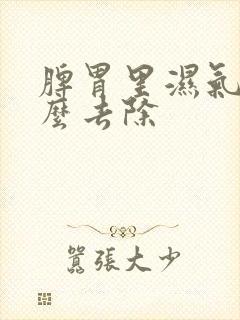 脾胃里濕氣
麽去除
囂張大少